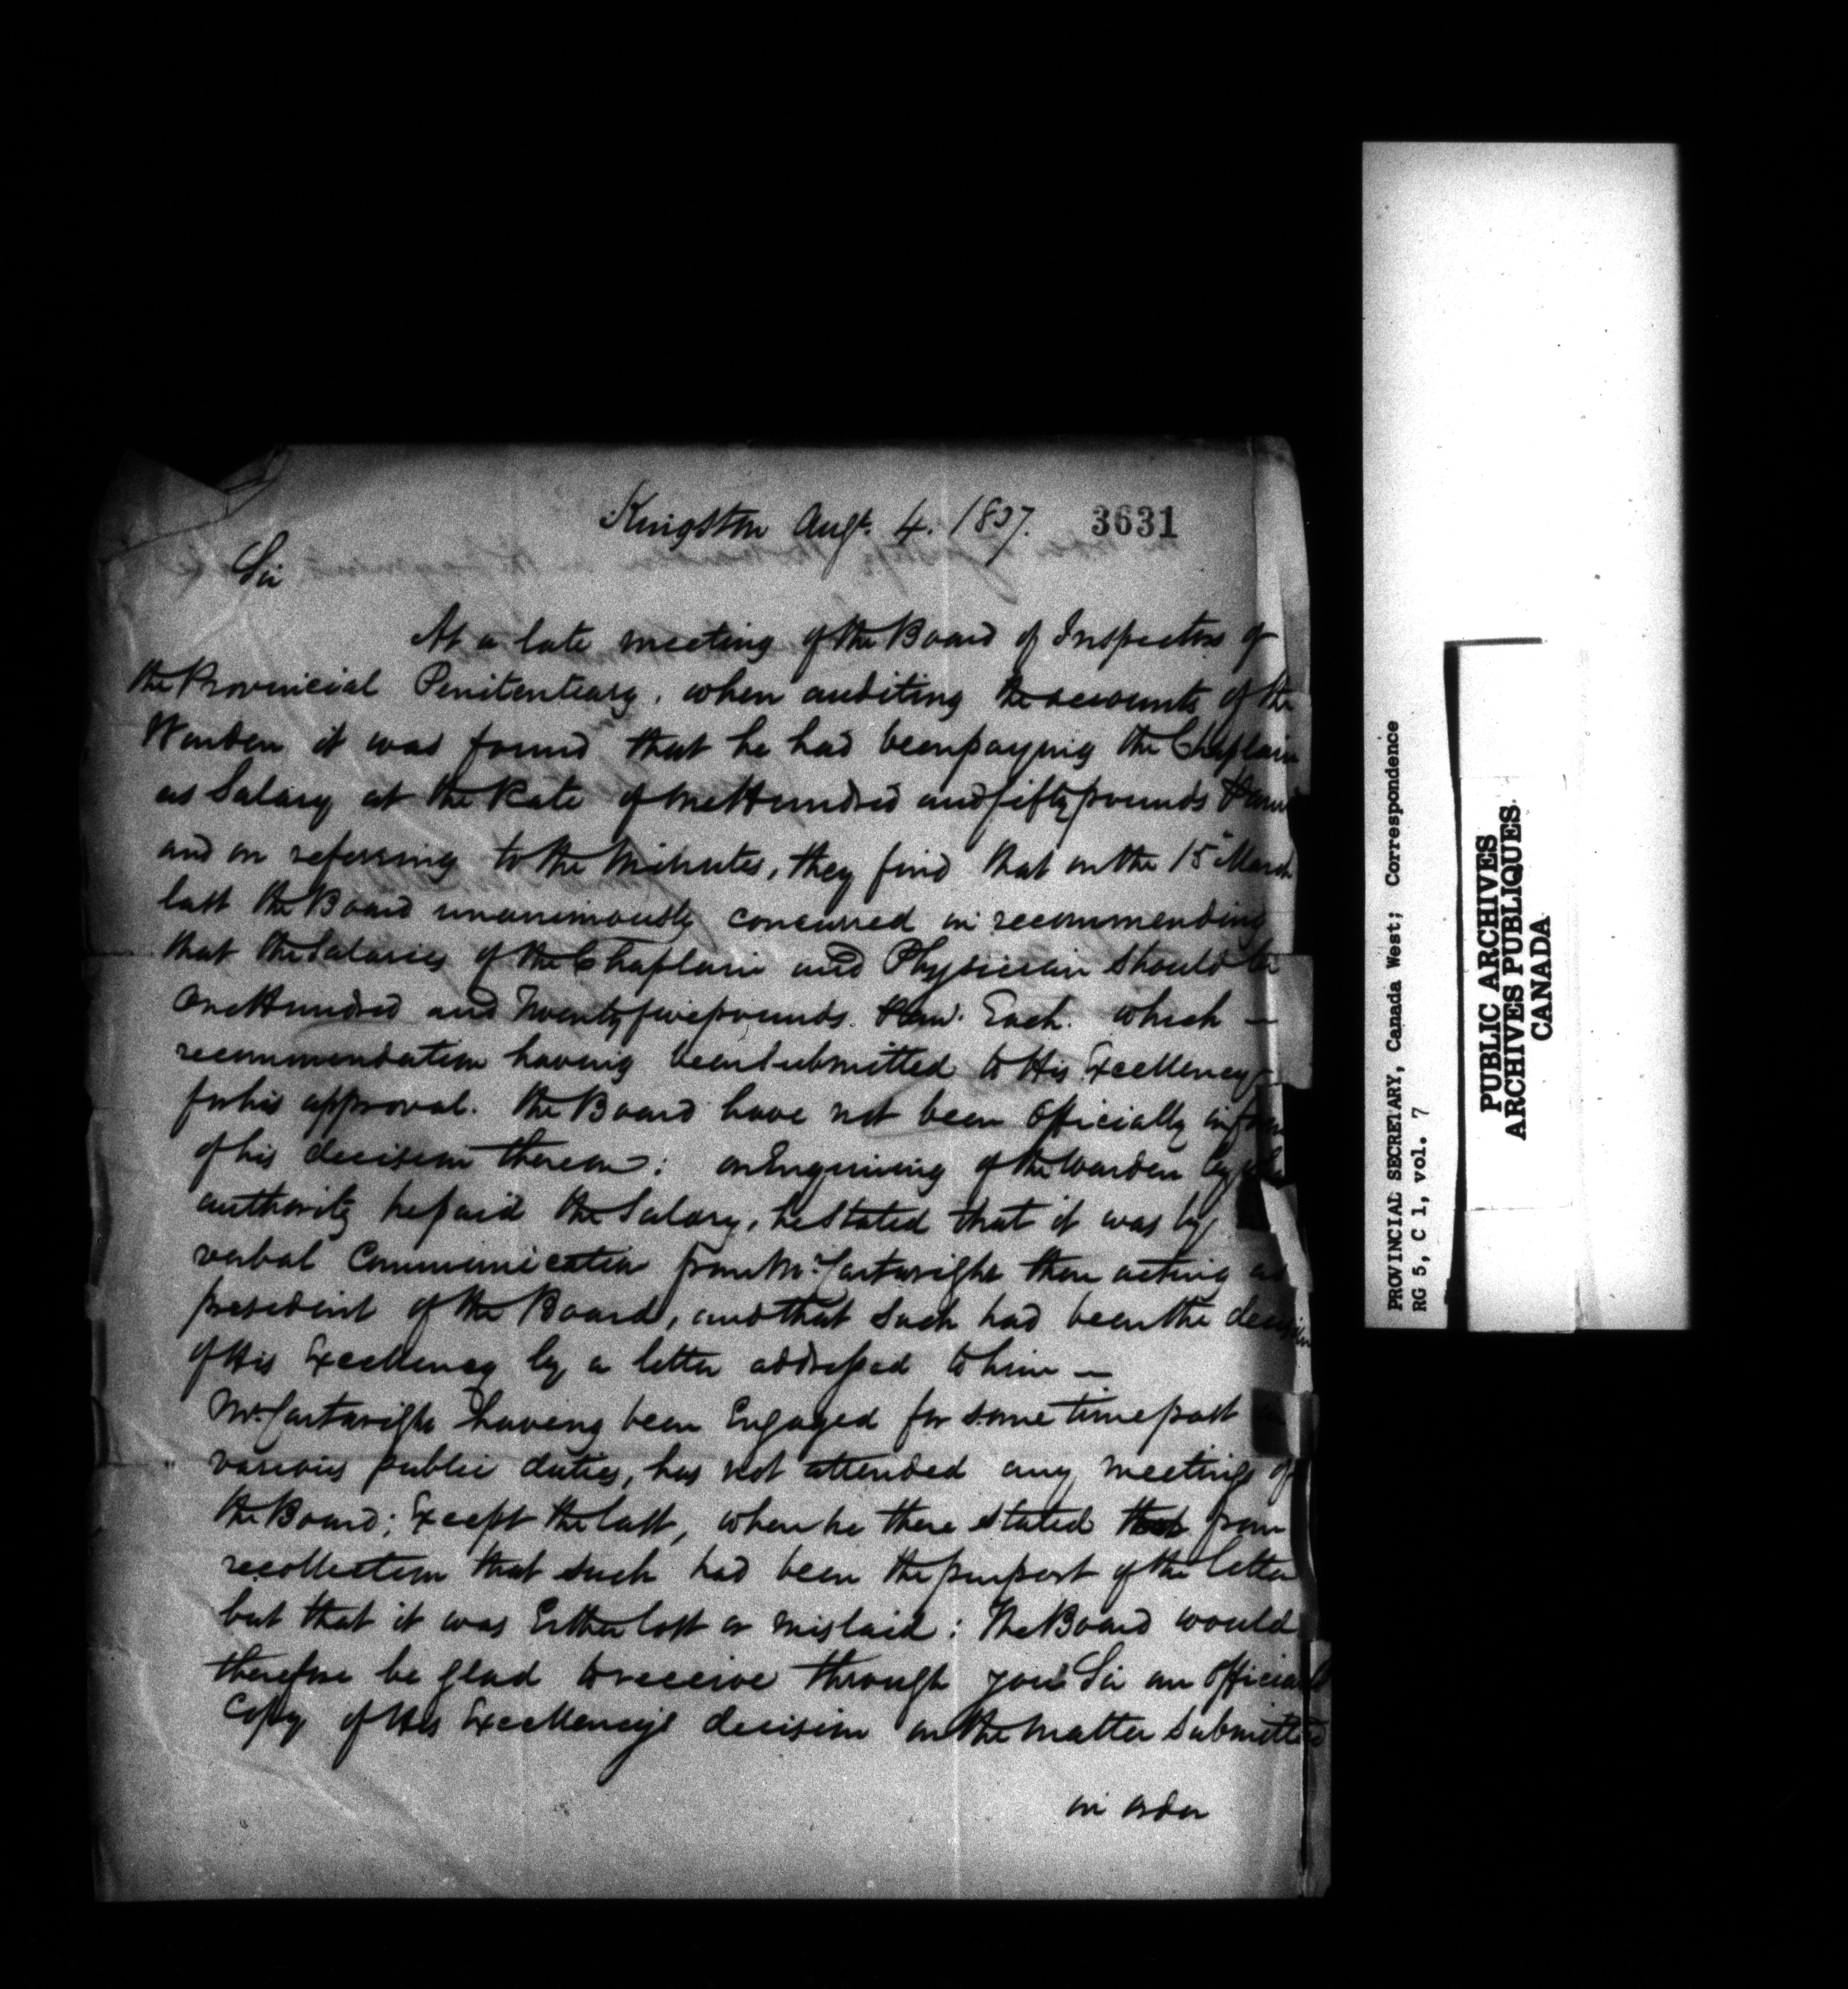 Kingston Augt. 4. 1837. 3631
Sir
At a late meeting of the Board of Inspectors of
the Provincial Penitentiary, when auditing the accounts of the
Warden it was found that he had been paying the Chaplain
as Salary at the Rate of One Hundred and fifty pounds P annu
and on referring to the Minutes, they find that on the 15th March
last the Board unanimously concurred in recommending
that the Salaries of the Chaplain and Physician should be
One Hundred and Twenty five pounds. P ann. Each. which —
recommendation having been submitted to His Excellency
for his approval. the Board have not been Officially inform
of his decision thereon: on Enquiring of the Warden by
authority he paid the Salary, he stated that it was by
verbal Communication from Mr. Cartwright then acting as
president of the Board, and that such had been the decision
of His Excellency by a letter addressed to him —
Mr. Cartwright having been Engaged for some time past
various public duties, has not attended any meetings of
the Board; Except the last, when he there stated from
recollection that such had been the purport of the letter
but that it was Either lost or mislaid: The Board would
therefore be glad to receive through you Sir an Official
Copy of His Excellency's decision on the matter submitted
in order
PROVINCIAL SECRETARY, Canada West; Correspondence
RG 5, C 1, vol. 7
PUBLIC ARCHIVES
ARCHIVES PUBLIQUES
CANADA